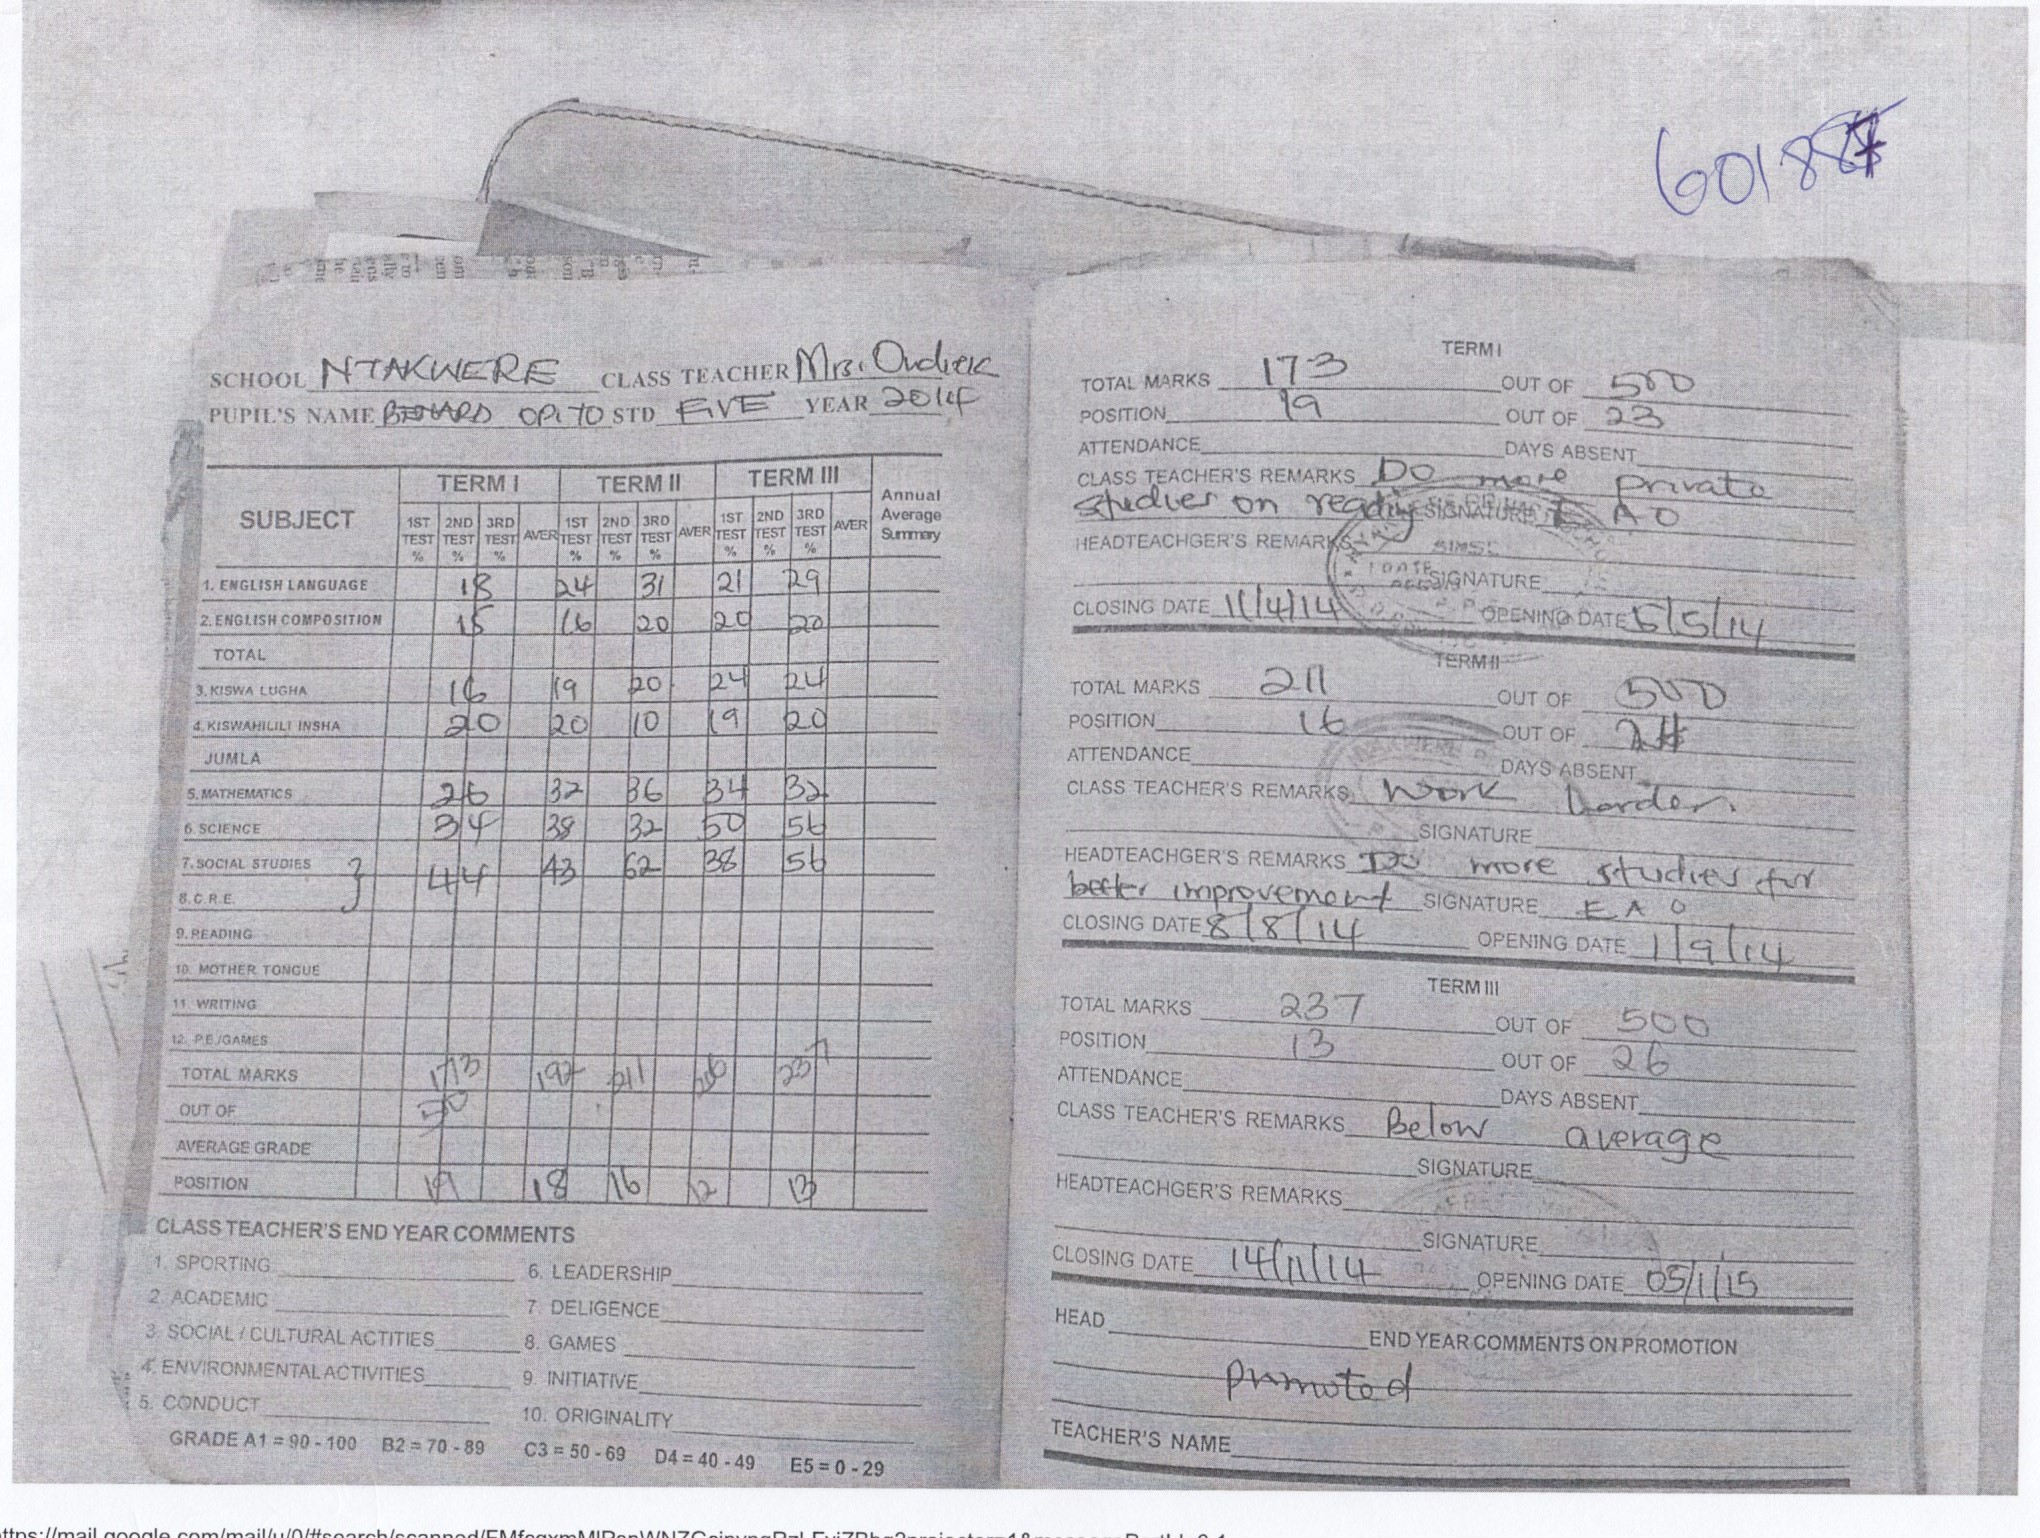 SCHOOL NTAKWERE CLASS TEACHER Mrs.
PUPIL'S NAME OPITO STD FIVE YEAR 2014
SUBJECT TERM I TERM II TERM III Annual Average Summary
1ST TEST % 2ND TEST % 3RD TEST % AVER 1ST TEST % 2ND TEST % 3RD TEST % AVER 1ST TEST % 2ND TEST % 3RD TEST % AVER
1. ENGLISH LANGUAGE 18 24 31 21 29
2. ENGLISH COMPOSITION 15 16 20 20 20
TOTAL
3. KISWA LUGHA 16 19 20 24 24
4. KISWAHILILI INSHA 20 20 10 19 20
JUMLA
5. MATHEMATICS 26 32 36 34 32
6. SCIENCE 34 38 32 50 56
7. SOCIAL STUDIES 44 43 62 38 56
8. C.R.E.
9. READING
10. MOTHER TONGUE
11. WRITING
12. P.E./GAMES
TOTAL MARKS 173 192 211 206 237
OUT OF
AVERAGE GRADE
POSITION 19 18 16 12 13
CLASS TEACHER'S END YEAR COMMENTS
1. SPORTING 6. LEADERSHIP
2. ACADEMIC 7. DELIGENCE
3. SOCIAL / CULTURAL ACTITIES 8. GAMES
4. ENVIRONMENTAL ACTIVITIES 9. INITIATIVE
5. CONDUCT 10. ORIGINALITY
GRADE A1 = 90 - 100 B2 = 70 - 89 C3 = 50 - 69 D4 = 40 - 49 E5 = 0 - 29
TERM I
TOTAL MARKS 173 OUT OF 500
POSITION 19 OUT OF 23
ATTENDANCE DAYS ABSENT
CLASS TEACHER'S REMARKS Do more private
studies on reading SIGNATURE E A O
HEADTEACHGER'S REMARKS
SIGNATURE
CLOSING DATE 11/4/14 OPENING DATE 5/5/14
TERM II
TOTAL MARKS 211 OUT OF 500
POSITION 16 OUT OF
ATTENDANCE DAYS ABSENT
CLASS TEACHER'S REMARKS Work harder.
SIGNATURE
HEADTEACHGER'S REMARKS Do more studies for
better improvement SIGNATURE E A O
CLOSING DATE 8/8/14 OPENING DATE 1/9/14
TERM III
TOTAL MARKS 237 OUT OF 500
POSITION 13 OUT OF 26
ATTENDANCE DAYS ABSENT
CLASS TEACHER'S REMARKS Below average
SIGNATURE
HEADTEACHGER'S REMARKS
SIGNATURE
CLOSING DATE 14/11/14 OPENING DATE 05/1/15
HEAD END YEAR COMMENTS ON PROMOTION
promoted
TEACHER'S NAME